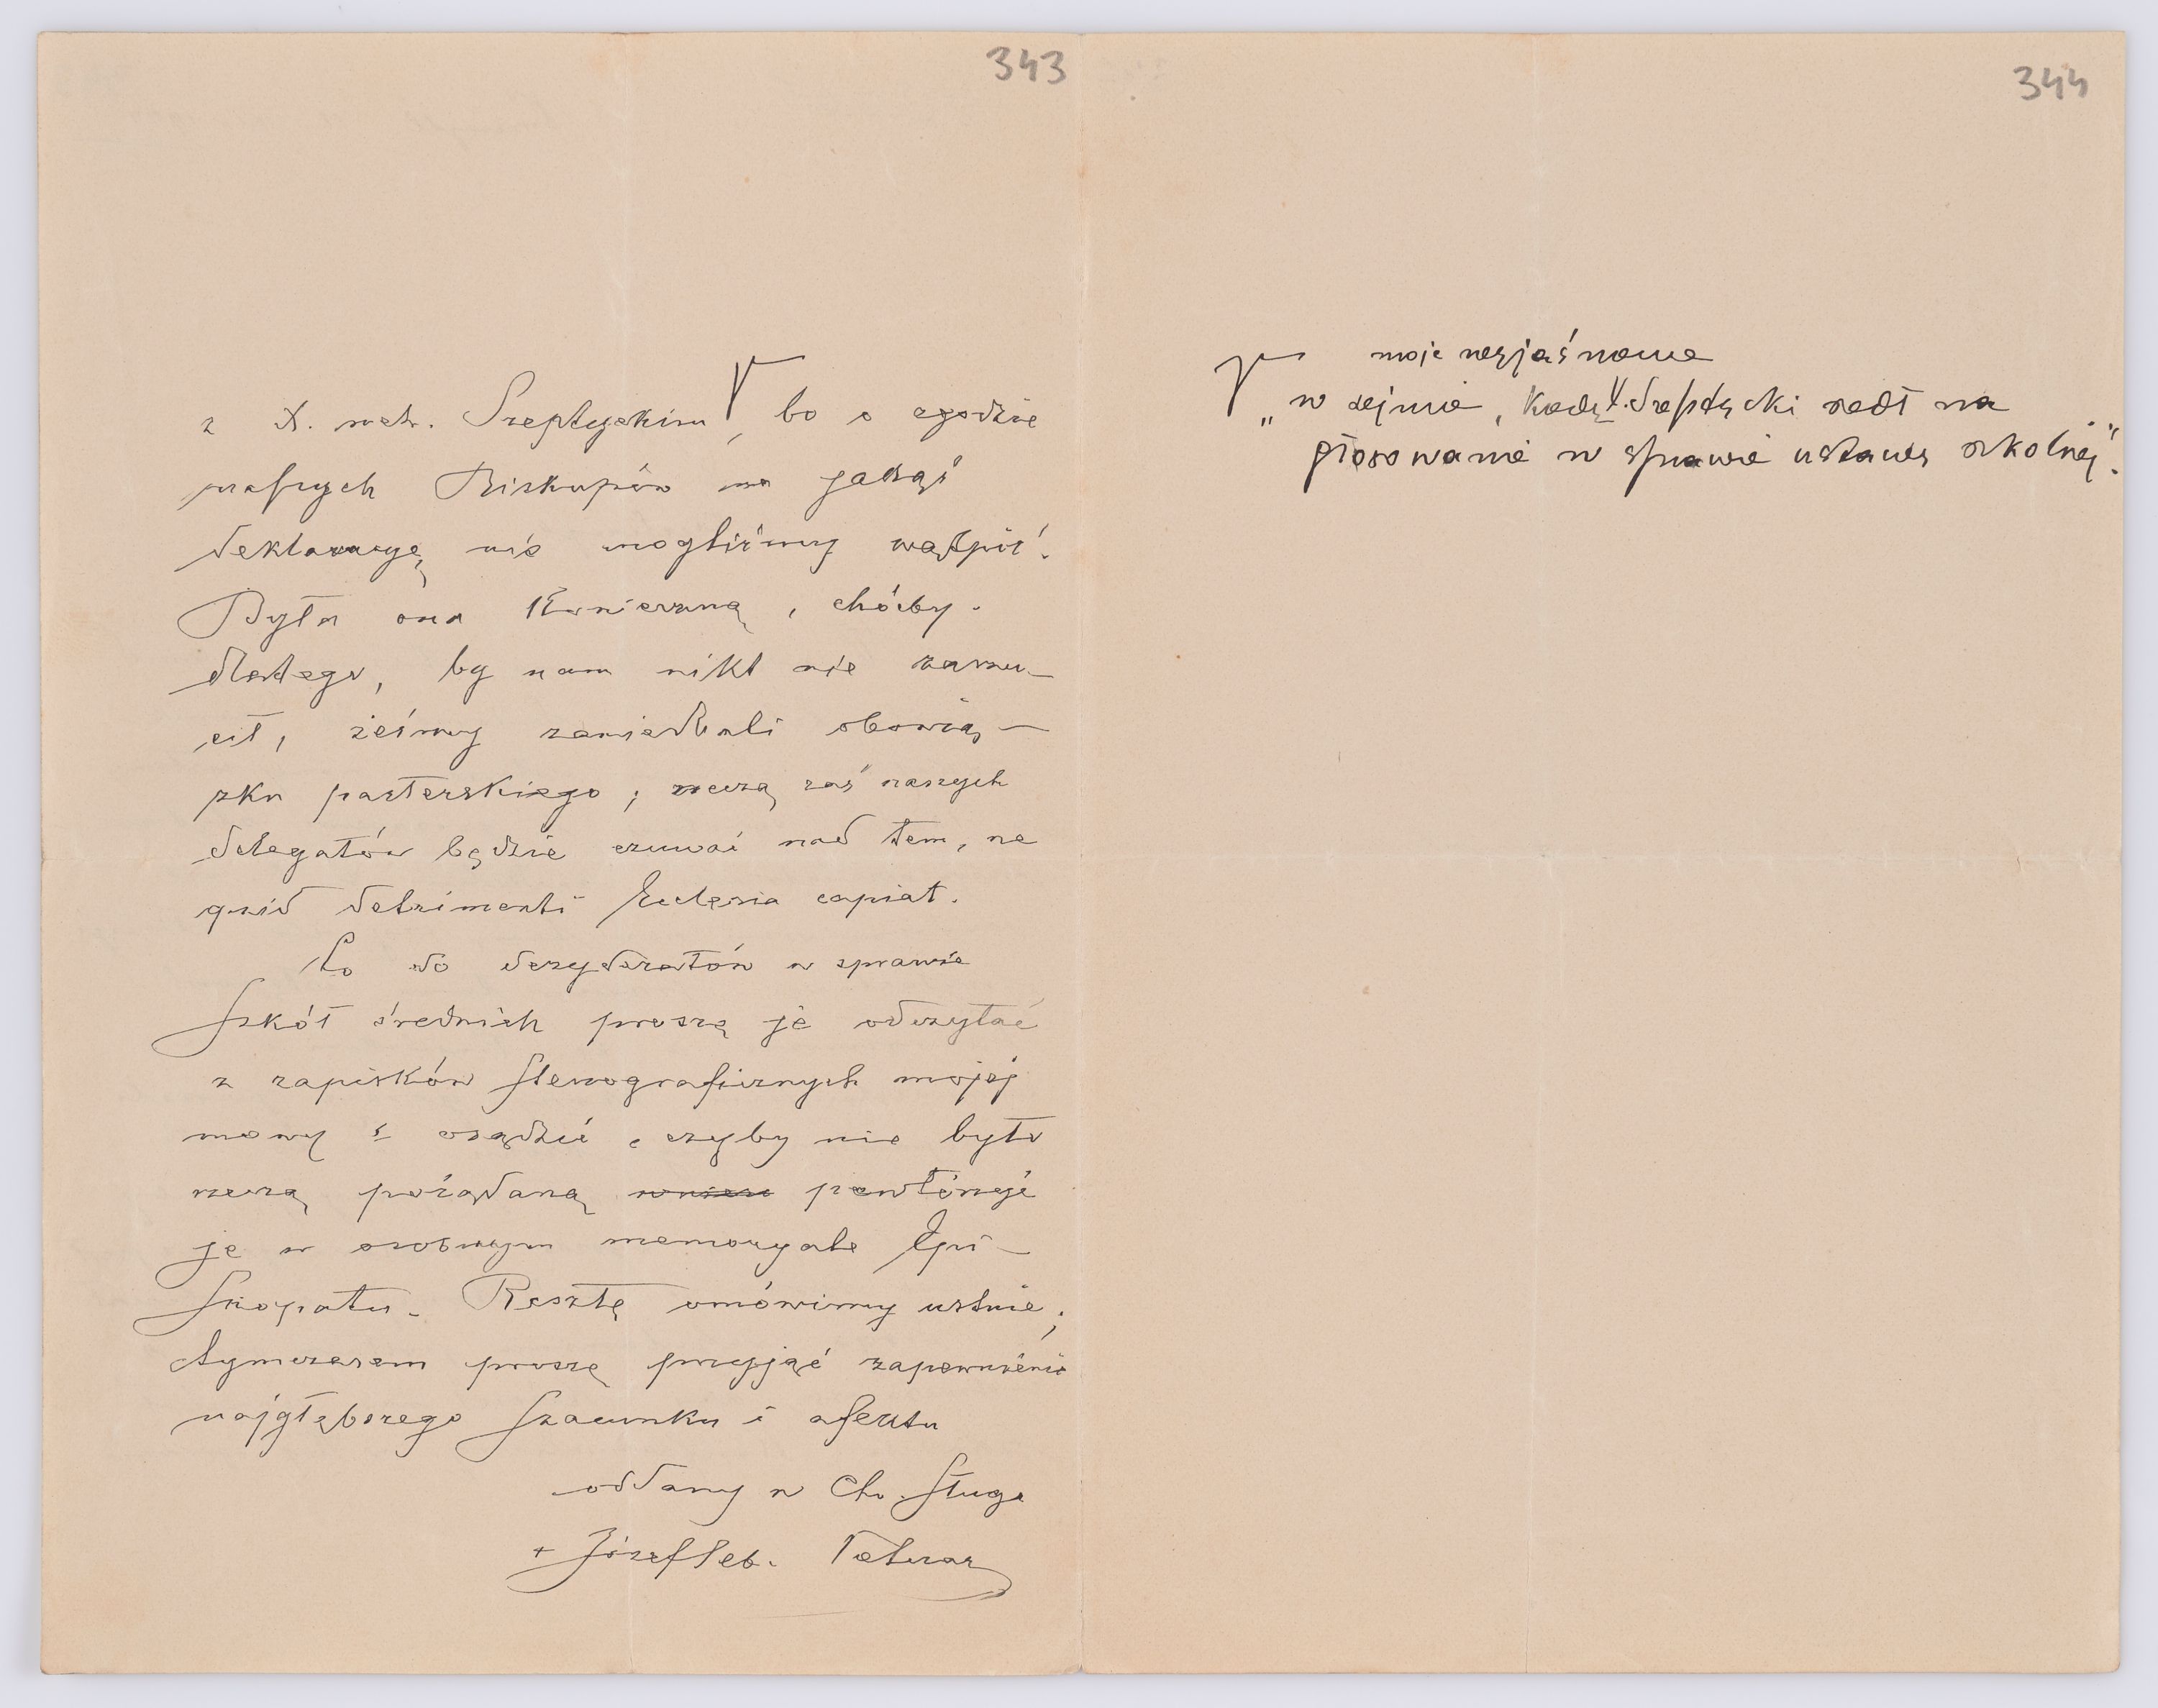 343
z X. metr. Szeptyckim, bo o zgodzie
naszych Biskupów na jakąś
deklaracyę nie mogliśmy wątpić.
Była ona konieczną, choćby
dlatego, by nam nikt nie zarzu-
cił, żeśmy zaniedbali obowią-
zku pasterskiego; rzeczą zaś naszych
delegatów będzie czuwać nad tem, ne
quid detrimenti Ecclesia capiat.
Co do dezyderatów w sprawie
Szkół średnich proszę je odczytać
z zapisków stenograficznych mojej
mowy i osądzić, czyby nie było
rzeczą pożądaną powtórzyć
je w osobnym memoryale Epi-
skopatu. Resztę omówimy ustnie;
tymczasem proszę przyjąć zapewnienie
najgłębszego szacunku i afektu
oddany w Ch. sługa
+ Józef Seb. Pelczar
344
moje wyjaśnienie
"w sejmie, kiedy X. Szeptycki szedł na
głosowanie w sprawie ustawy szkolnej".